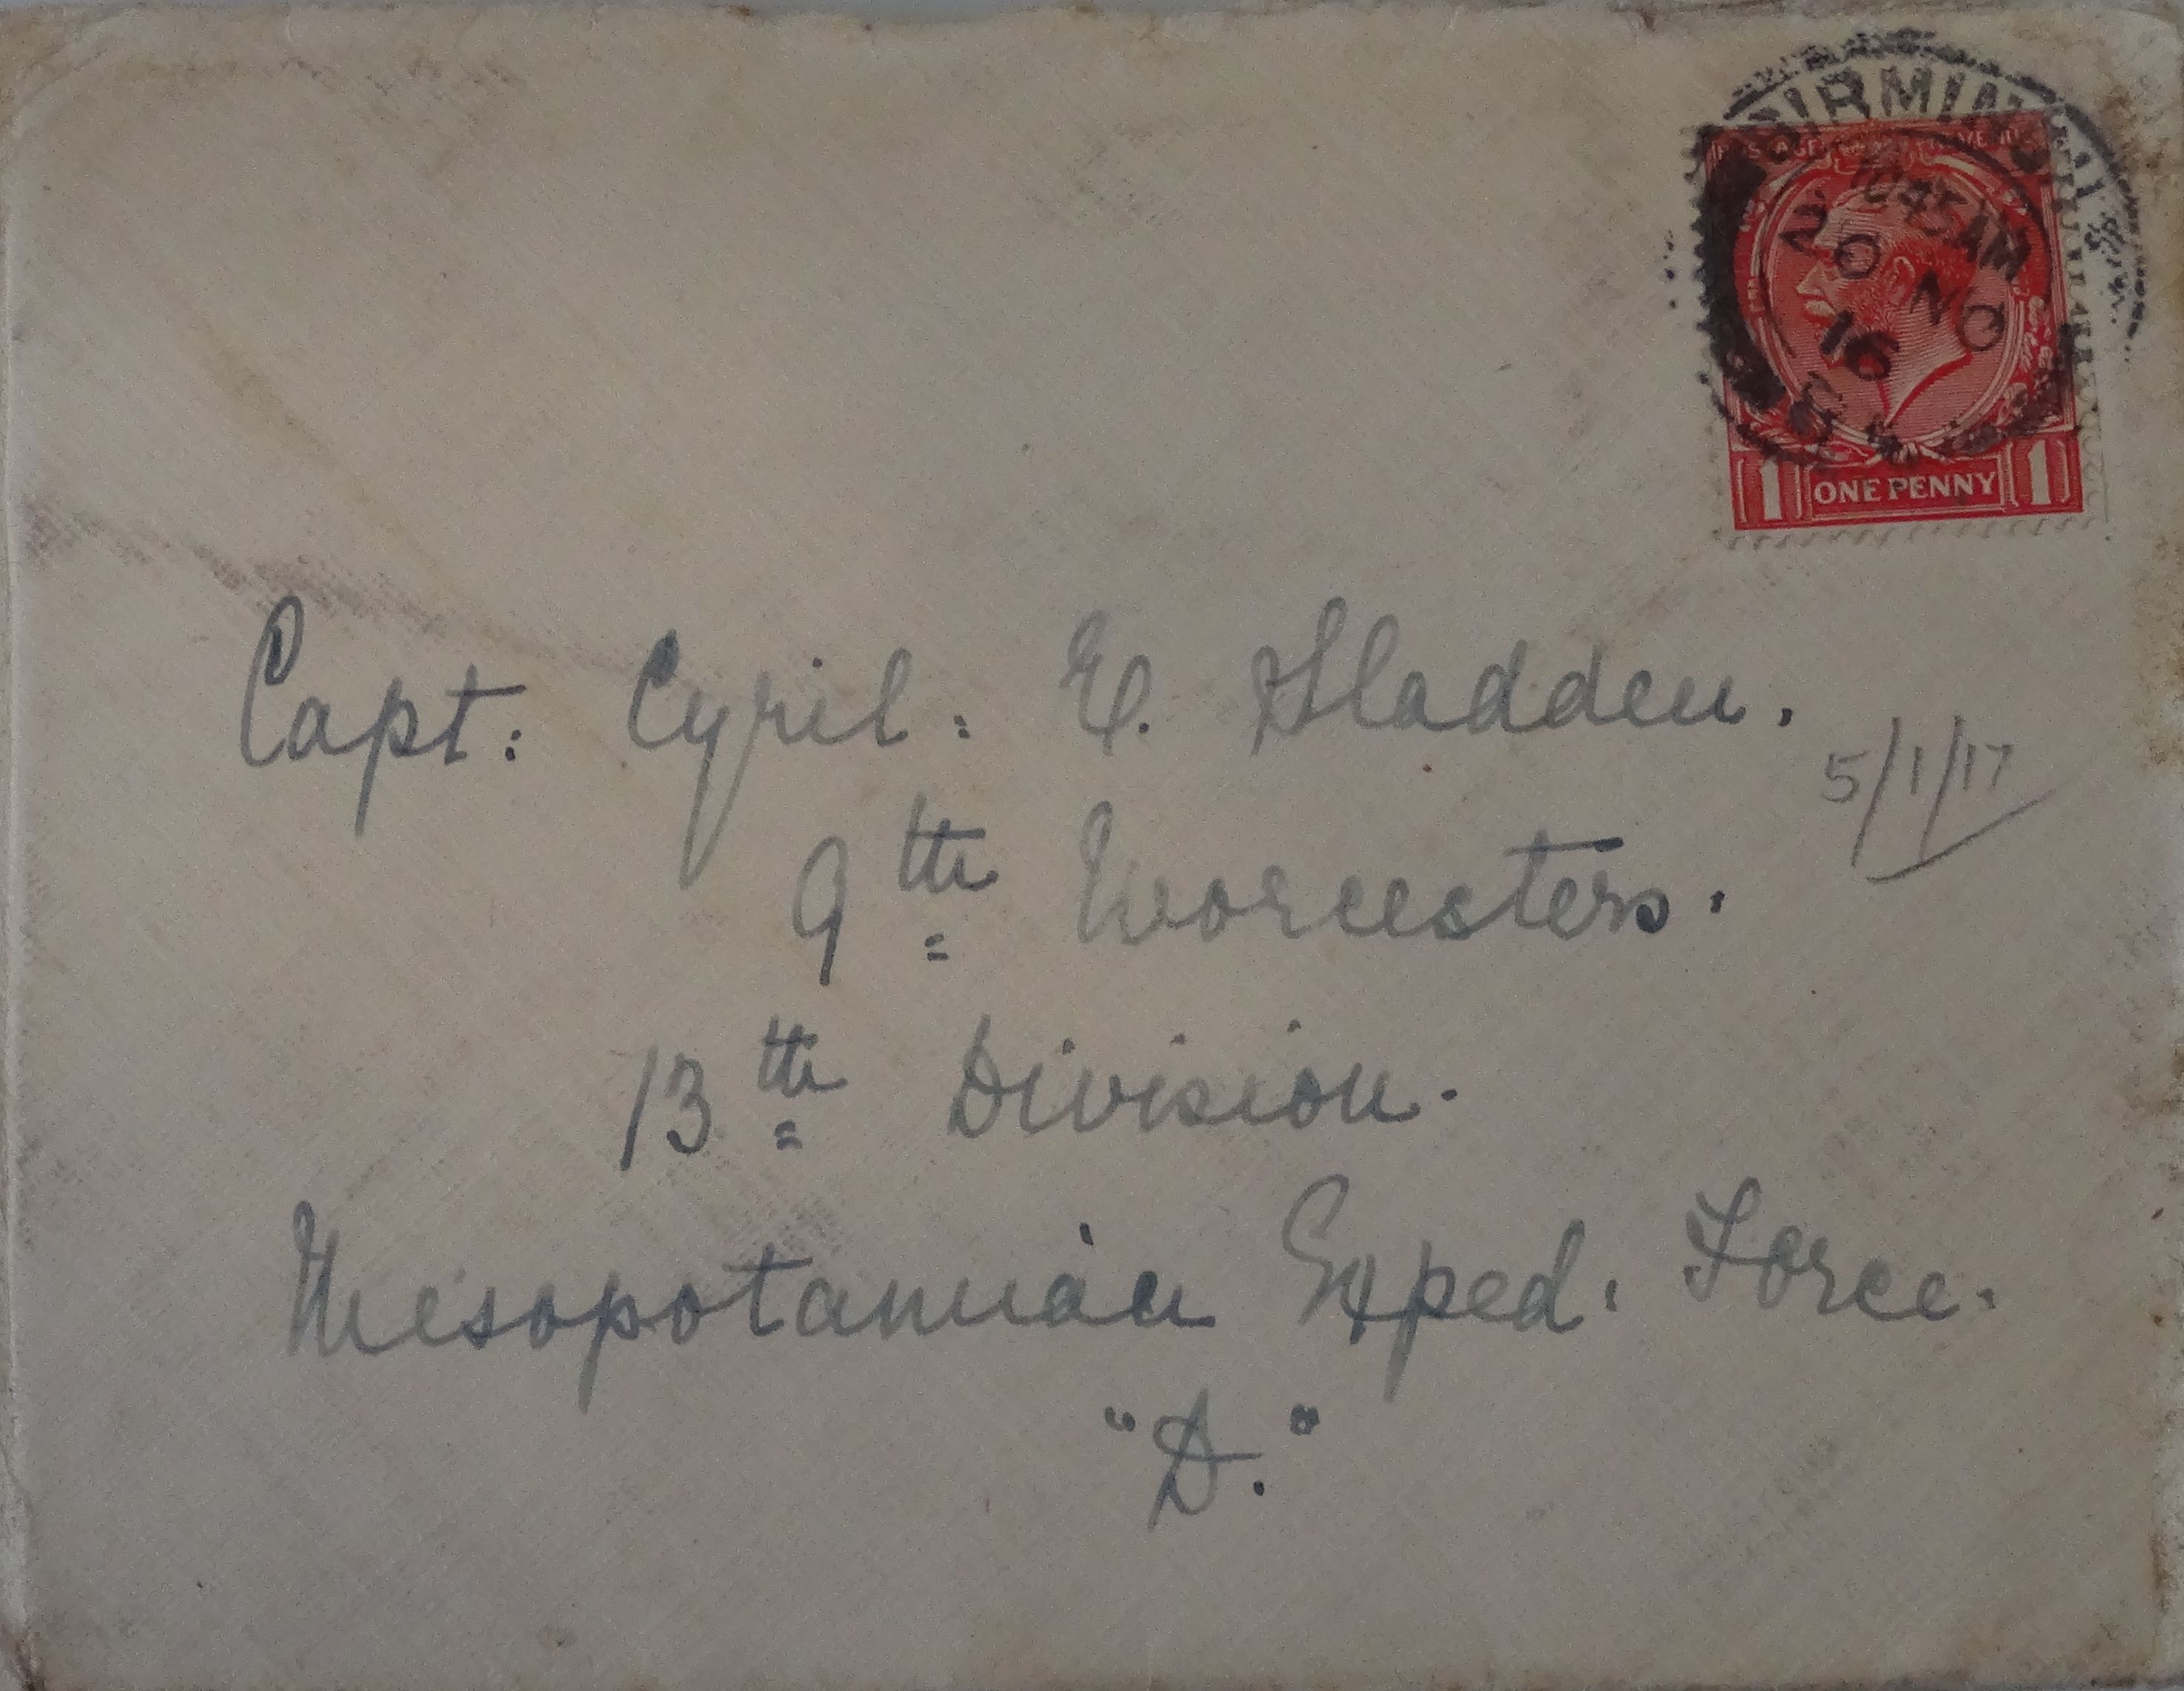 BIRMIN
10 45 AM
20 NO
16
1 ONE PENNY 1
Capt: Cyril. E. Sladden.
5/1/17
9th Worcesters.
13th Division.
Mesopotamian Exped. Force.
"D."